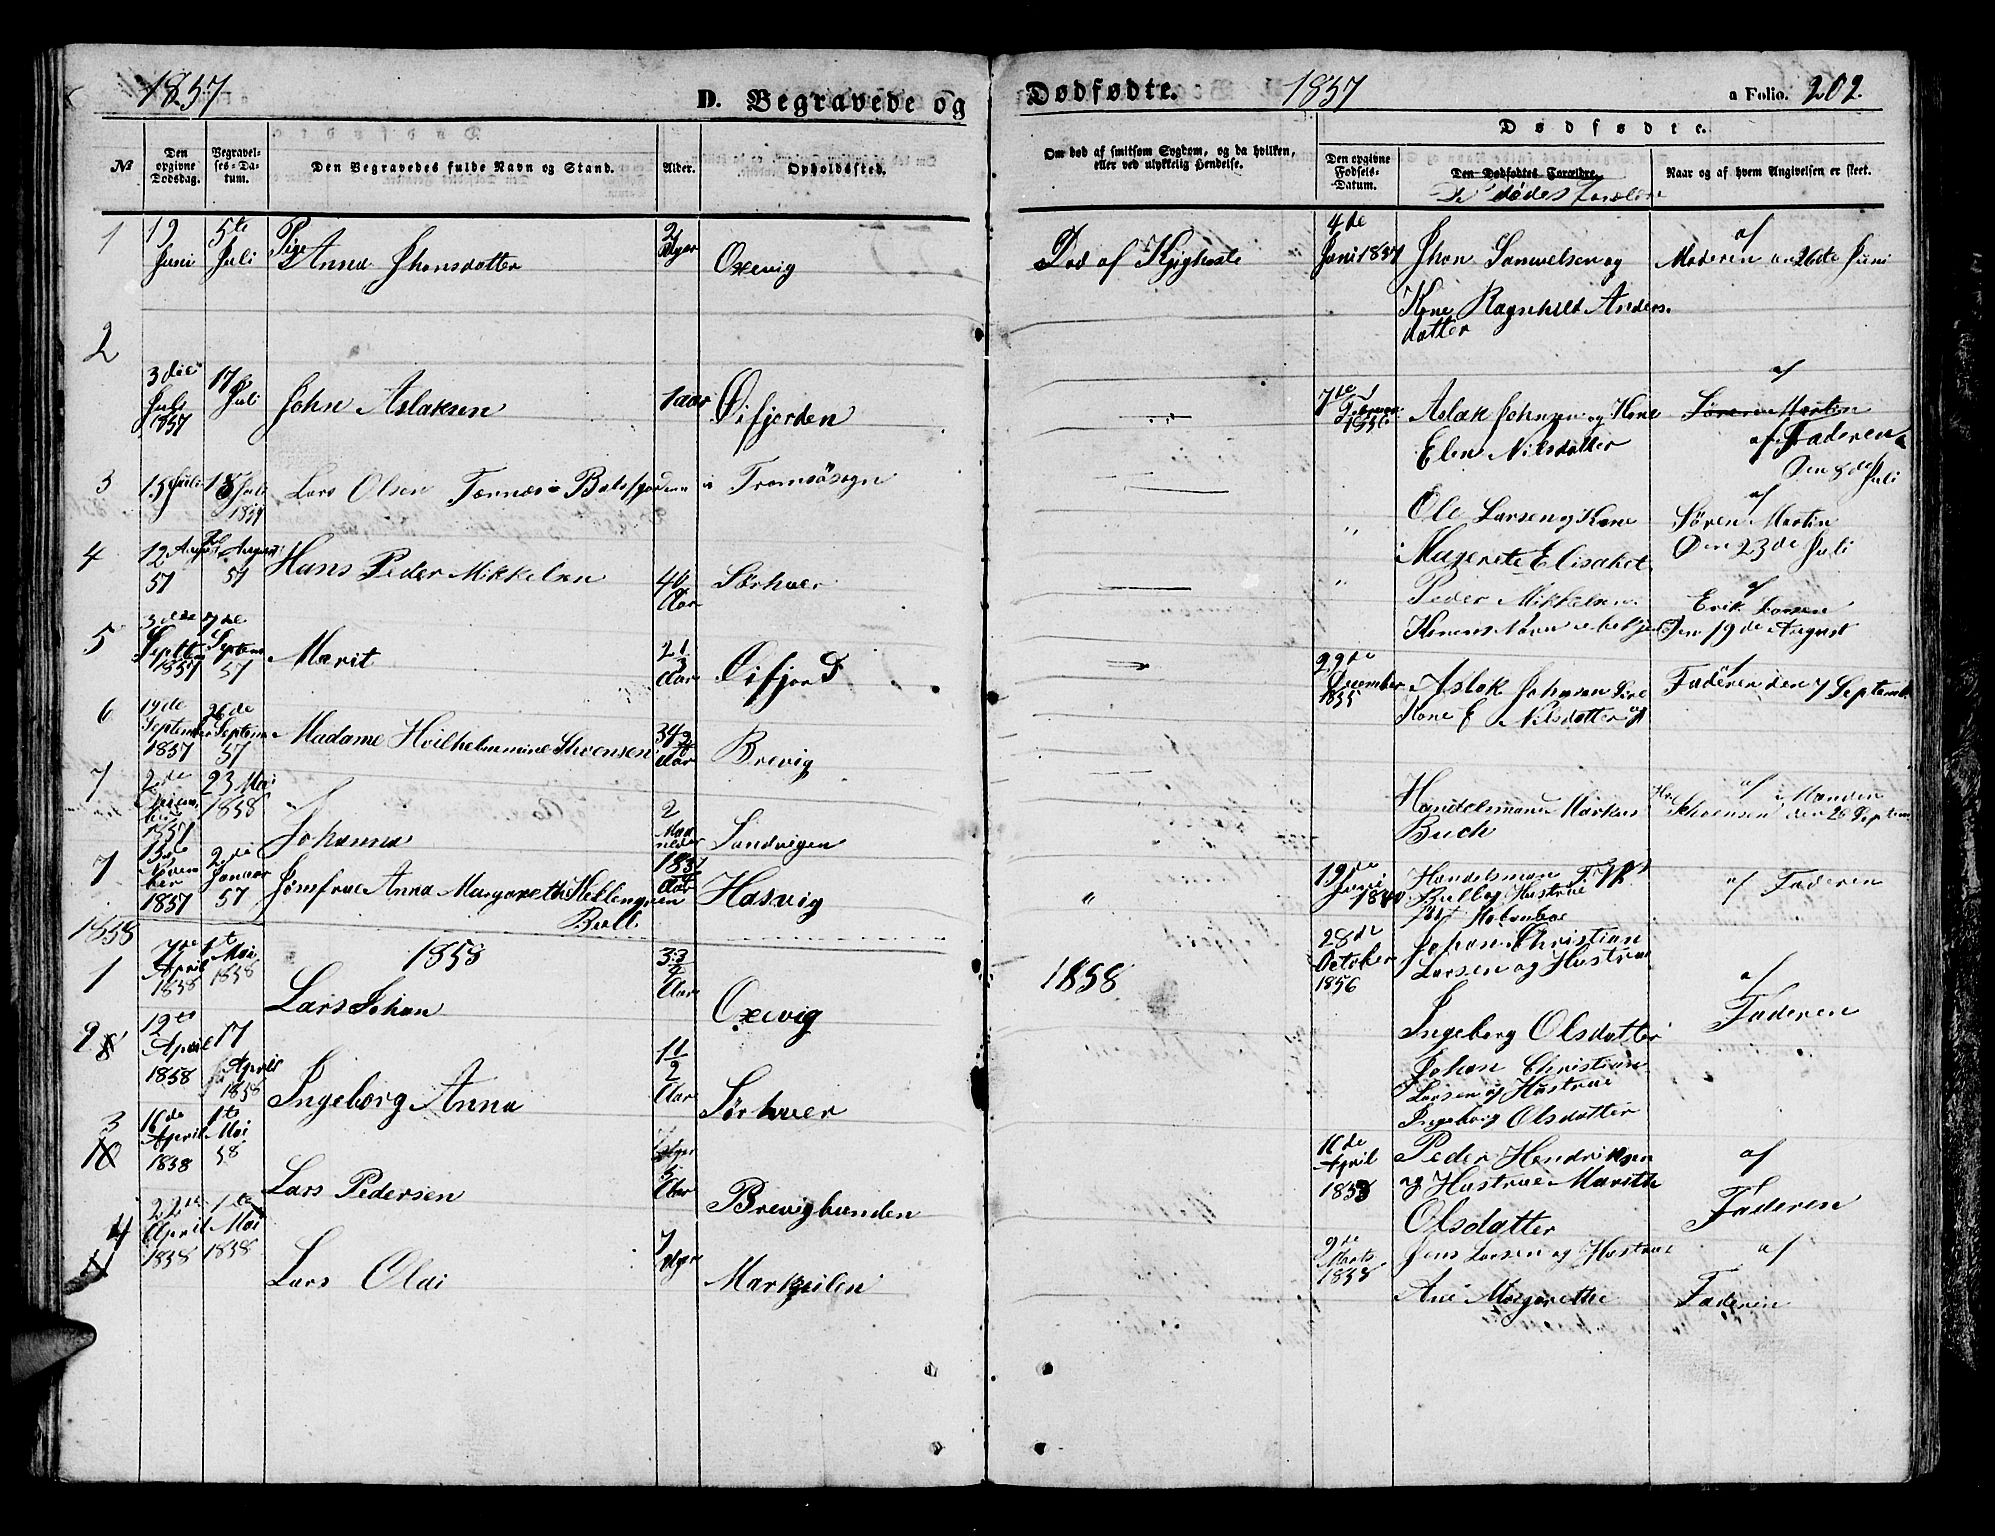 1857 D. Begravede og Dødfødte. 1857 a Folio. 202.
№ Den opgivne Dødsdag. Begravelses-Datum. Den Begravedes fulde Navn og Stand. Alder. Opholdssted. Om død af smitsom Sygdom, og da hvilken, eller ved ulykkelig Hendelse. Dødfødte. Den opgivne Fødsels-Datum. Den Dødfødtes Forældre. Naar og af hvem Angivelsen er skeet.
De dødes Forældre
1 19 Juni 5te Juli Pige Anna Jhonsdatter 2 Uger Oxevig Død af Kighoste 4de Juni 1857 Jhon Samuelsen og Kone Ragnhild Andersdatter af Moderen en 26de Juni
2 3die Juli 1857 17 Juli John Aslaksen 1 aar Øifjorden 7de Februar 1856 Aslak Johnsen og Kone Elen Nilsdatter af Søren Martin af Faderen Den 8de Juli
3 15 Juli 18 Juli 1857 Lars Olsen Tømnes i Balsfjorden i Tromsøsogn " Ole Larsen og Kone Magrete Elisabet af Søren Martin Den 23de Juli
4 12 August 57 August 57 Hans Peder Mikkelsen 40 Aar Sørhver " Peder Mikkelsen Konens Navn af Erik Larsen Den 19de August
5 3die Septem 1857 7de Septem 57 Marit 2 1/3 Aar Øifjord 22de December 1855 Aslak Johnsen Kone E Nilsdatter af Faderen den 7 Septemb
6 19de September 1857 26de Septem 57 Madame Hvilhelmmine Schvensen 34 Aar Brevig Handelsmand Markus Buch af Manden Schvensen den 26 Septem
7 2de 1857 23 Mai 1858 Johanna 2 Maaneder Sandvigen
7 13de November 1857 2de Januar 57 Jomfrue Anna Margareth Hellengreen Bull 18 Aar Hasvig " 19de Juni 1840 Handelsman Bull og Hustrue af Faderen
1858 1858 1858
1 7de April 1858 1te Mai 1858 Lars Johan 3 3/4 Aar Oxevig 28de October 1856 Johan Christian Larsen og Hustrue Ingeborg Olsdatter af Faderen
2 8 12te April 1858 17 April 1858 Ingeborg Anna 1 1/2 Aar Sørhver Johan Christian Larsen og Hustrue Ingeborg Olsdatter
3 10 16de April 1858 1te Mai 58 Lars Pedersen 5 Aar Brevigbunden 16de April 1853 Peder Hendriksen og Hustrue Marith Olsdatter af Faderen
4 22de April 1858 1te Mai 1858 Lars Olai 7 Uger Markeilen 9de Marts 1858 Jens Larsen og Hustrue Ane Margrethe af Faderen